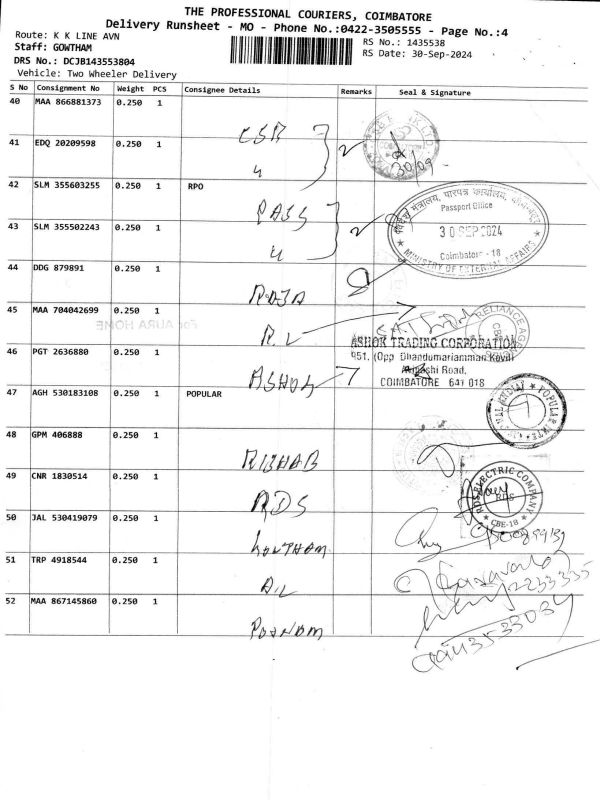 THE PROFESSIONAL COURIERS, COIMBATORE
Delivery Runsheet - MO - Phone No.:0422-3505555 - Page No.:4
Route: K K LINE AVN
RS No.: 1435538
Staff: GOWTHAM
RS Date: 30-Sep-2024
DRS No.: DCJB143553804
Vehicle: Two Wheeler Delivery
S No Consignment No Weight PCS Consignee Details Remarks Seal & Signature
40 MAA 866881373 0.250 1
CSB
30/09
41 EDQ 20209598 0.250 1
"
42 SLM 355603255 0.250 1 RPO
PASS
Passport Office
30 SEP 2024
Coimbatore - 18
MINISTRY OF EXTERNAL AFFAIRS
43 SLM 355502243 0.250 1
"
44 DDG 879891 0.250 1
RAJA
45 MAA 704042699 0.250 1
For AURA HOME
R.L
RELIANCE
ASHOK TRADING CORPORATION
951, (Opp Dhandumariamman Kovil)
Avinashi Road,
COIMBATORE 641 018
46 PGT 2636880 0.250 1
ASHOK
47 AGH 530183108 0.250 1 POPULAR
POPULAR
48 GPM 406888 0.250 1
RISHAB
49 CNR 1830514 0.250 1
RDS
RDS ELECTRIC COMPANY
RDS
CBE-18
50 JAL 530419079 0.250 1
GOWTHAM
51 TRP 4918544 0.250 1
A.L
52 MAA 867145860 0.250 1
POONAM